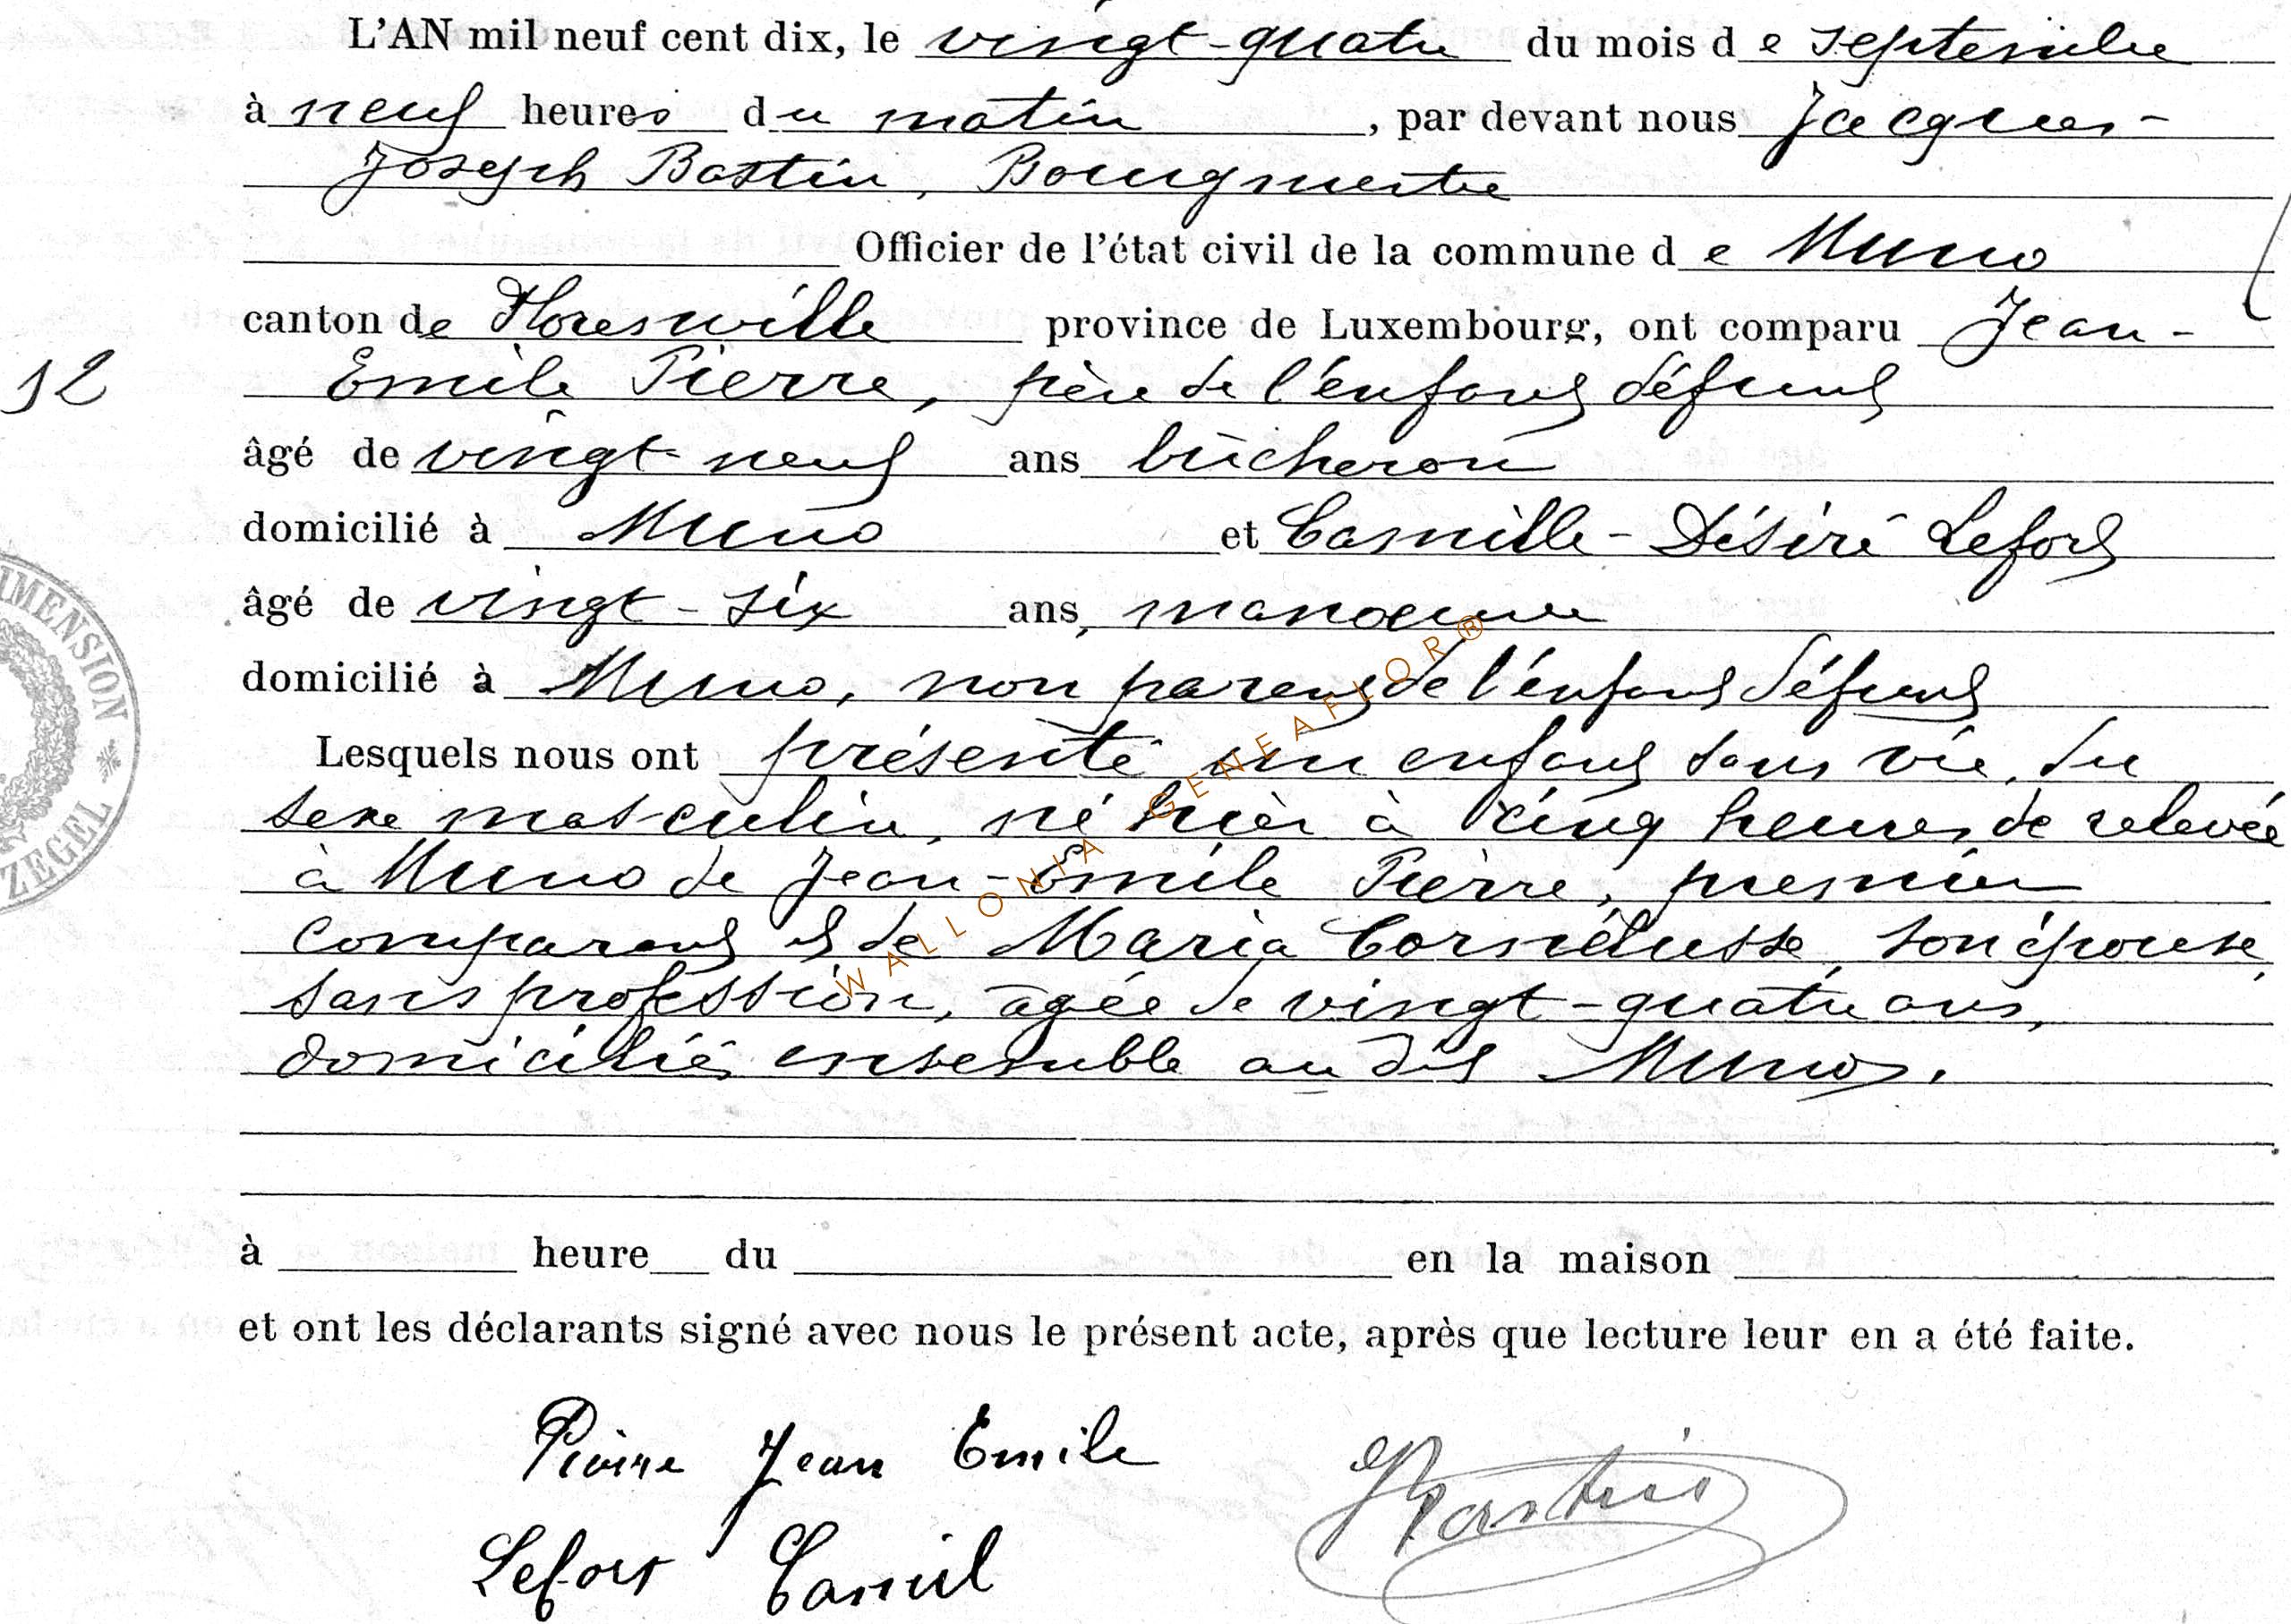 L'AN mil neuf cent dix, le vingt-quatre du mois de septembre
à neuf heures du matin, par devant nous Jacques-
Joseph Bastin, Bourgmestre
Officier de l'état civil de la commune de Muno
canton de Florenville province de Luxembourg, ont comparu Jean-
12
Emile Pierre, père de l'enfant défunt
âgé de vingt-neuf ans bûcheron
domicilié à Muno et Camille-Désiré Lefort
âgé de vingt-six ans, manoeuvre
domicilié à Muno, non parent de l'enfant défunt
Lesquels nous ont présenté un enfant sans vie, du
sexe masculin, né hier à cinq heures de relevée
à Muno de Jean-Emile Pierre, premier
comparant et de Maria Cornélusse, son épouse,
sans profession, âgée de vingt-quatre ans,
domiciliés ensemble au dit Muno.
à heure du en la maison
et ont les déclarants signé avec nous le présent acte, après que lecture leur en a été faite.
Pierre Jean Emile
JBastin
Lefort Camil
IMENSION * ZEGEL
WALLONIA GENEAFLOR®